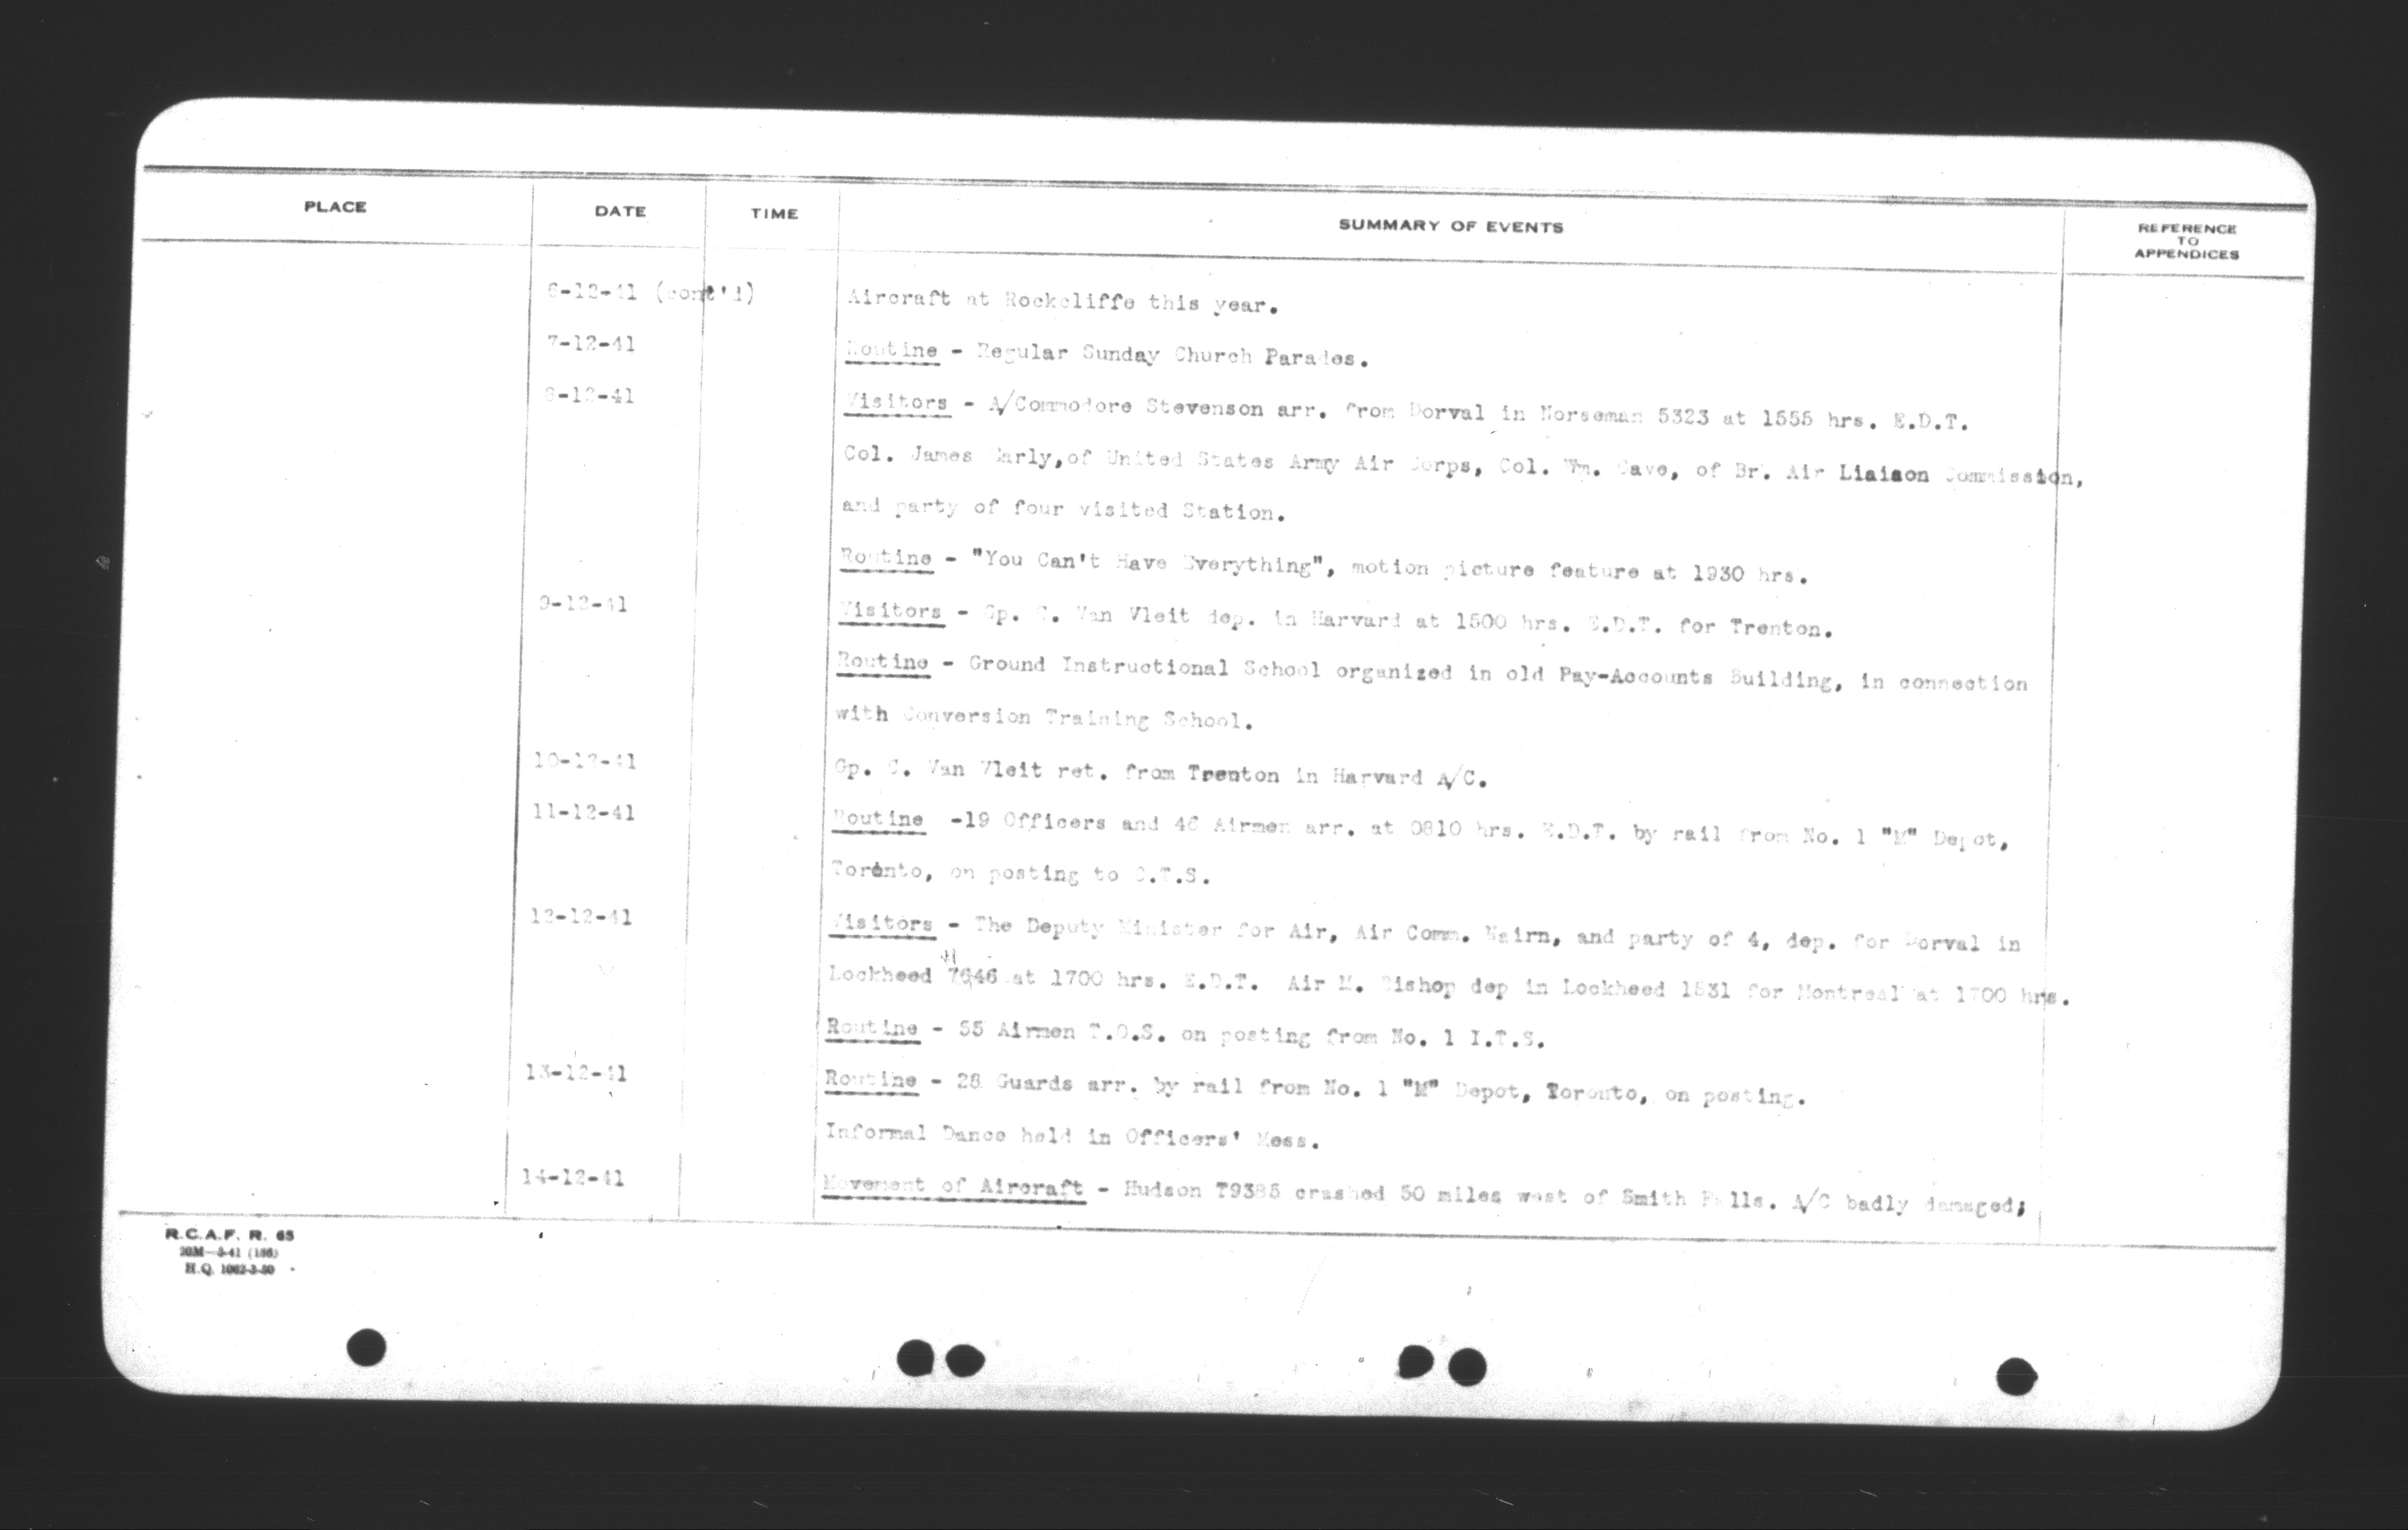 PLACE DATE TIME SUMMARY OF EVENTS REFERENCE TO APPENDICES
6-12-41 (cont'd) Aircraft at Rockcliffe this year.
7-12-41 Routine - Regular Sunday Church Parades.
8-12-41 Visitors - A/Commodore Stevenson arr. from Dorval in Norseman 5323 at 1555 hrs. E.D.T.
Col. James Early, of United States Army Air Corps, Col. Wm. Cave, of Br. Air Liaison Commission,
and party of four visited Station.
Routine - "You Can't Have Everything", motion picture feature at 1930 hrs.
9-12-41 Visitors - Gp. C. Van Vleit dep. in Harvard at 1500 hrs. E.D.T. for Trenton.
Routine - Ground Instructional School organized in old Pay-Accounts Building, in connection
with Conversion Training School.
10-12-41 Gp. C. Van Vleit ret. from Trenton in Harvard A/C.
11-12-41 Routine -19 Officers and 46 Airmen arr. at 0810 hrs. E.D.T. by rail from No. 1 "M" Depot,
Toronto, on posting to C.T.S.
12-12-41 Visitors - The Deputy Minister for Air, Air Comm. Nairn, and party of 4, dep. for Dorval in
Lockheed 7646 at 1700 hrs. E.D.T. Air M. Bishop dep in Lockheed 1531 for Montreal at 1700 hrs.
Routine - 55 Airmen T.O.S. on posting from No. 1 I.T.S.
13-12-41 Routine - 28 Guards arr. by rail from No. 1 "M" Depot, Toronto, on posting.
Informal Dance held in Officers' Mess.
14-12-41 Movement of Aircraft - Hudson T9385 crashed 50 miles west of Smith Falls. A/C badly damaged;
R.C.A.F. R. 65
20M—5-41 (186)
H.Q. 1062-3-50